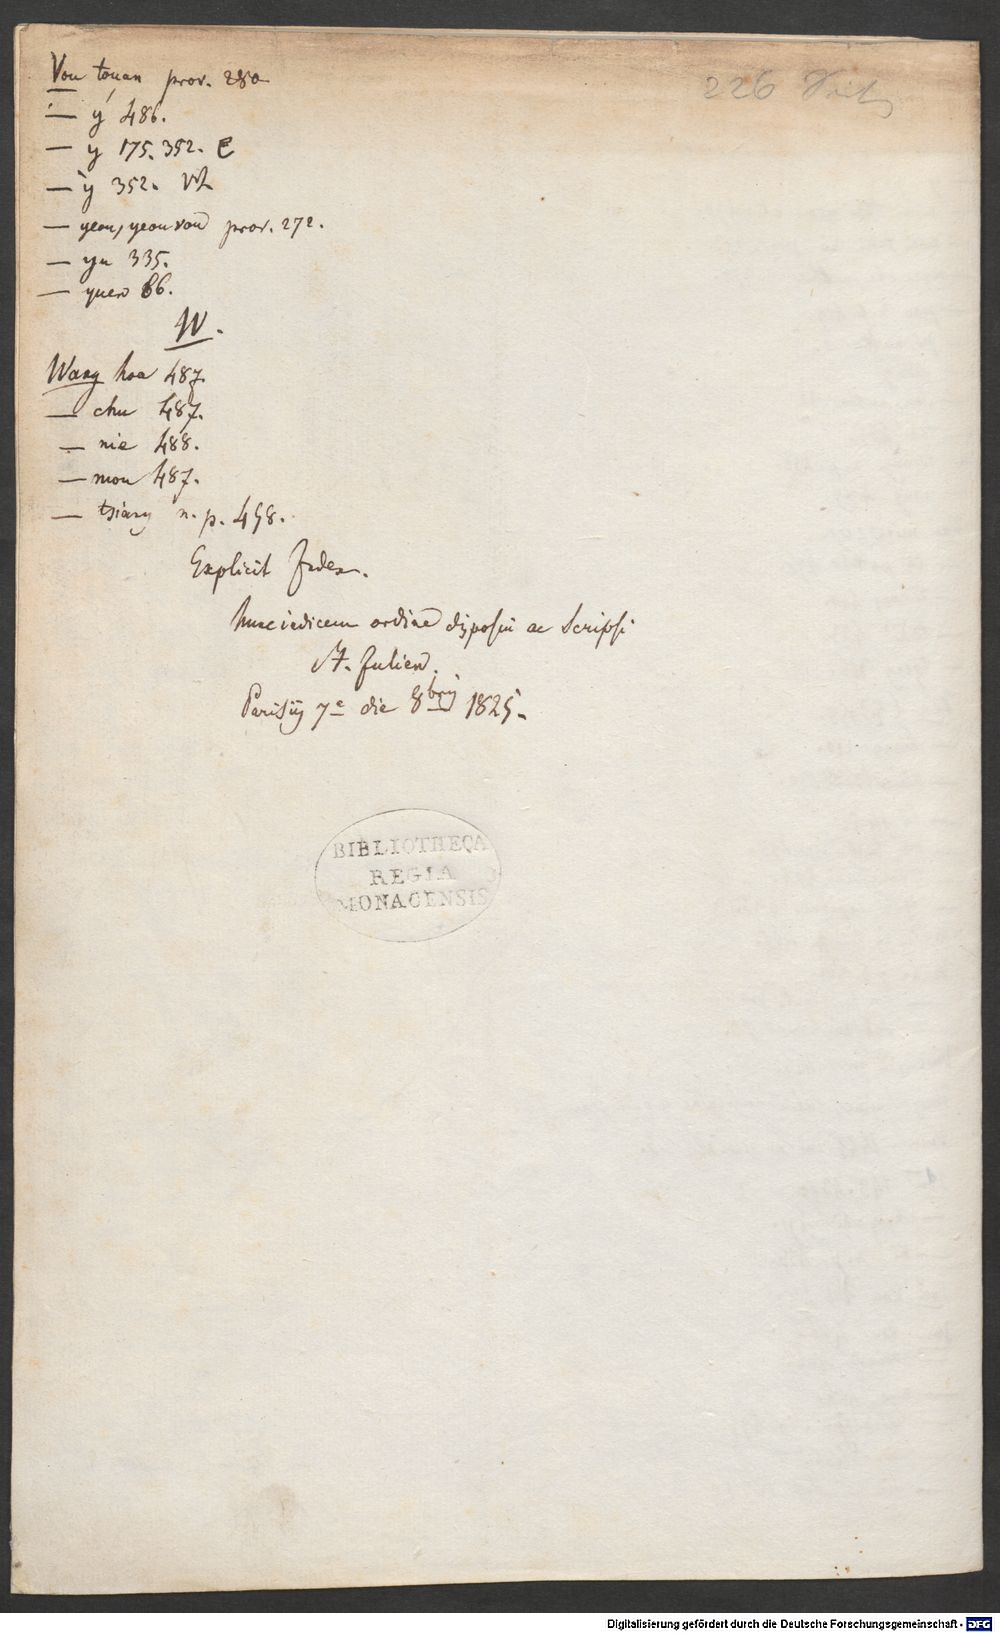 Vou touan prov. 280
— ý 486.
— y 175. 352. E
— ỳ 352.
— yeou, yeou vou prov. 272.
— yu 335.
— yuen 66.
W.
Wang hoa 487.
— chu 487.
— nie 488.
— mou 487.
— tsiang n. p. 458.
Explicit Index.
hunc indicem ordine disposui ac scripsi
St. Julien.
Parisiis 7e die 8bris 1825.
226
BIBLIOTHECA
REGIA
MONACENSIS
Digitalisierung gefördert durch die Deutsche Forschungsgemeinschaft - DFG